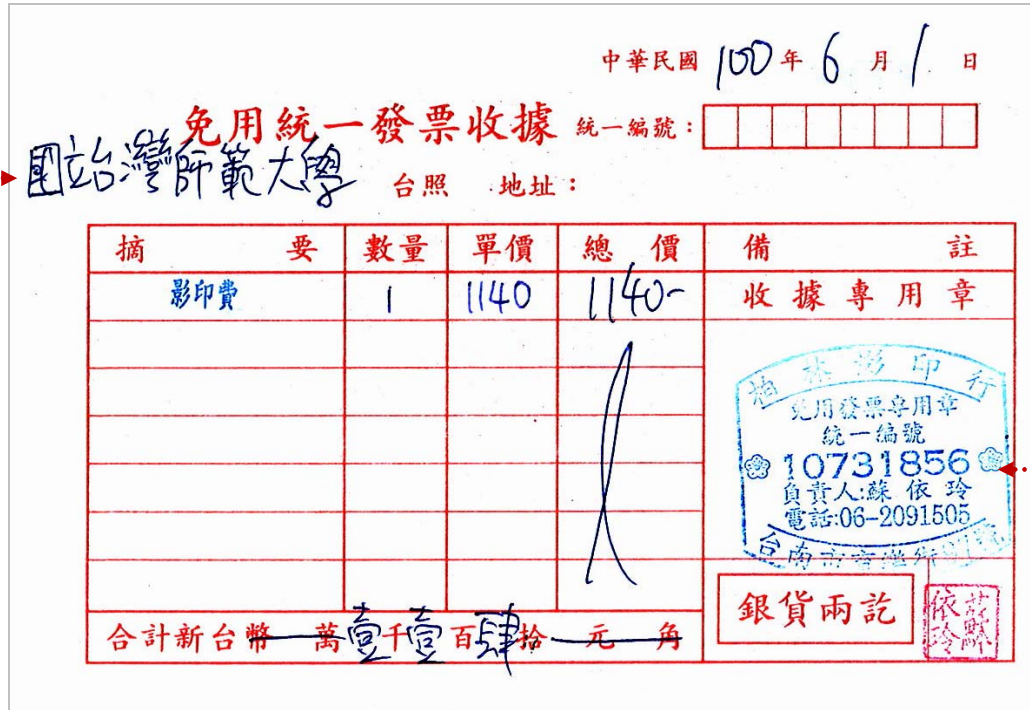 中華民國 100 年 6 月 1 日
免用統一發票收據 統一編號：
國立台灣師範大學 台照 地址：
摘要 數量 單價 總價 備註
影印費 1 1140 1140- 收據專用章
柏林影印行
免用發票專用章
統一編號
10731856
負責人:蘇依玲
電話:06-2091505
台南市育樂街
銀貨兩訖
蘇依玲
合計新台幣 萬壹千壹百肆拾 元 角